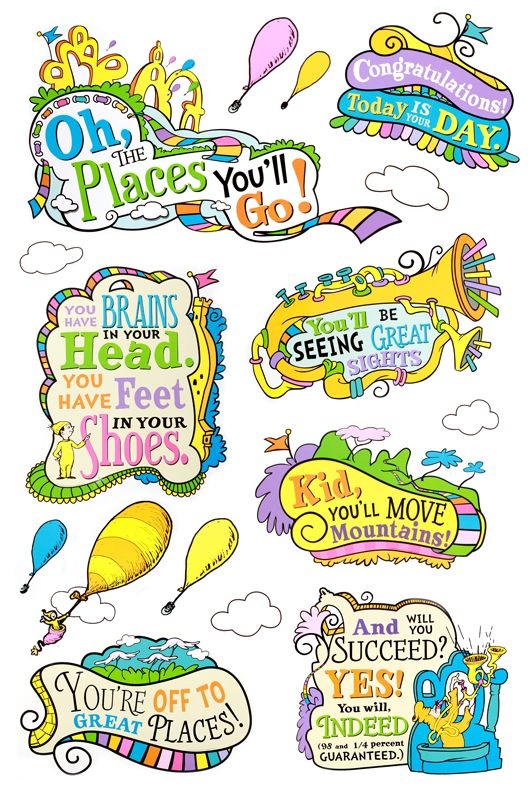 Oh,
THE
Places You'll
Go!
Congratulations!
Today IS YOUR DAY.
YOU HAVE BRAINS
IN YOUR
Head.
YOU
HAVE Feet
IN YOUR
Shoes.
You'll BE
SEEING GREAT
SIGHTS
Kid,
YOU'LL MOVE
Mountains!
YOU'RE OFF TO
GREAT PLACES!
And WILL YOU
SUCCEED?
YES!
You will,
INDEED
(98 and 3/4 percent
GUARANTEED.)